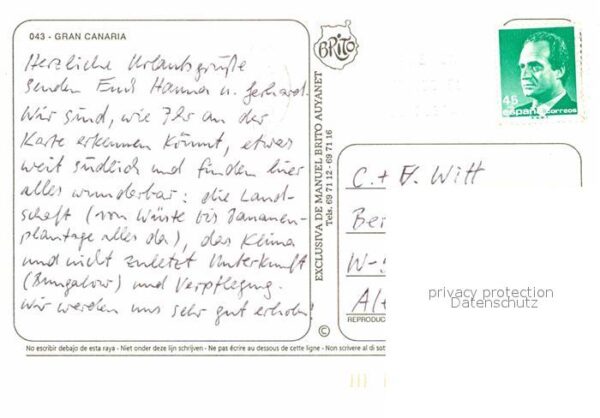 043 - GRAN CANARIA
Herzliche Urlaubsgrüße
senden Euch Hanna u. Gerhard.
Wir sind, wie Ihr an der
Karte erkennen könnt, etwas
weit südlich und finden hier
alles wunderbar: die Land-
schaft (von Wüste bis Bananen-
plantage alles da), das Klima
und nicht zuletzt Unterkunft
(Bungalow) und Verpflegung.
Wir werden uns sehr gut erholen!
BRITO
EXCLUSIVA DE MANUEL BRITO AUYANET
Telx. 69 71 12 - 69 71 16
©
45
españa correos
C. + H. Witt
Ber
W-
Al
REPRODUC
privacy protection
Datenschutz
No escribir debajo de esta raya - Niet onder deze lijn schrijven - Ne pas écrire au dessous de cette ligne - Non scrivere al di sott